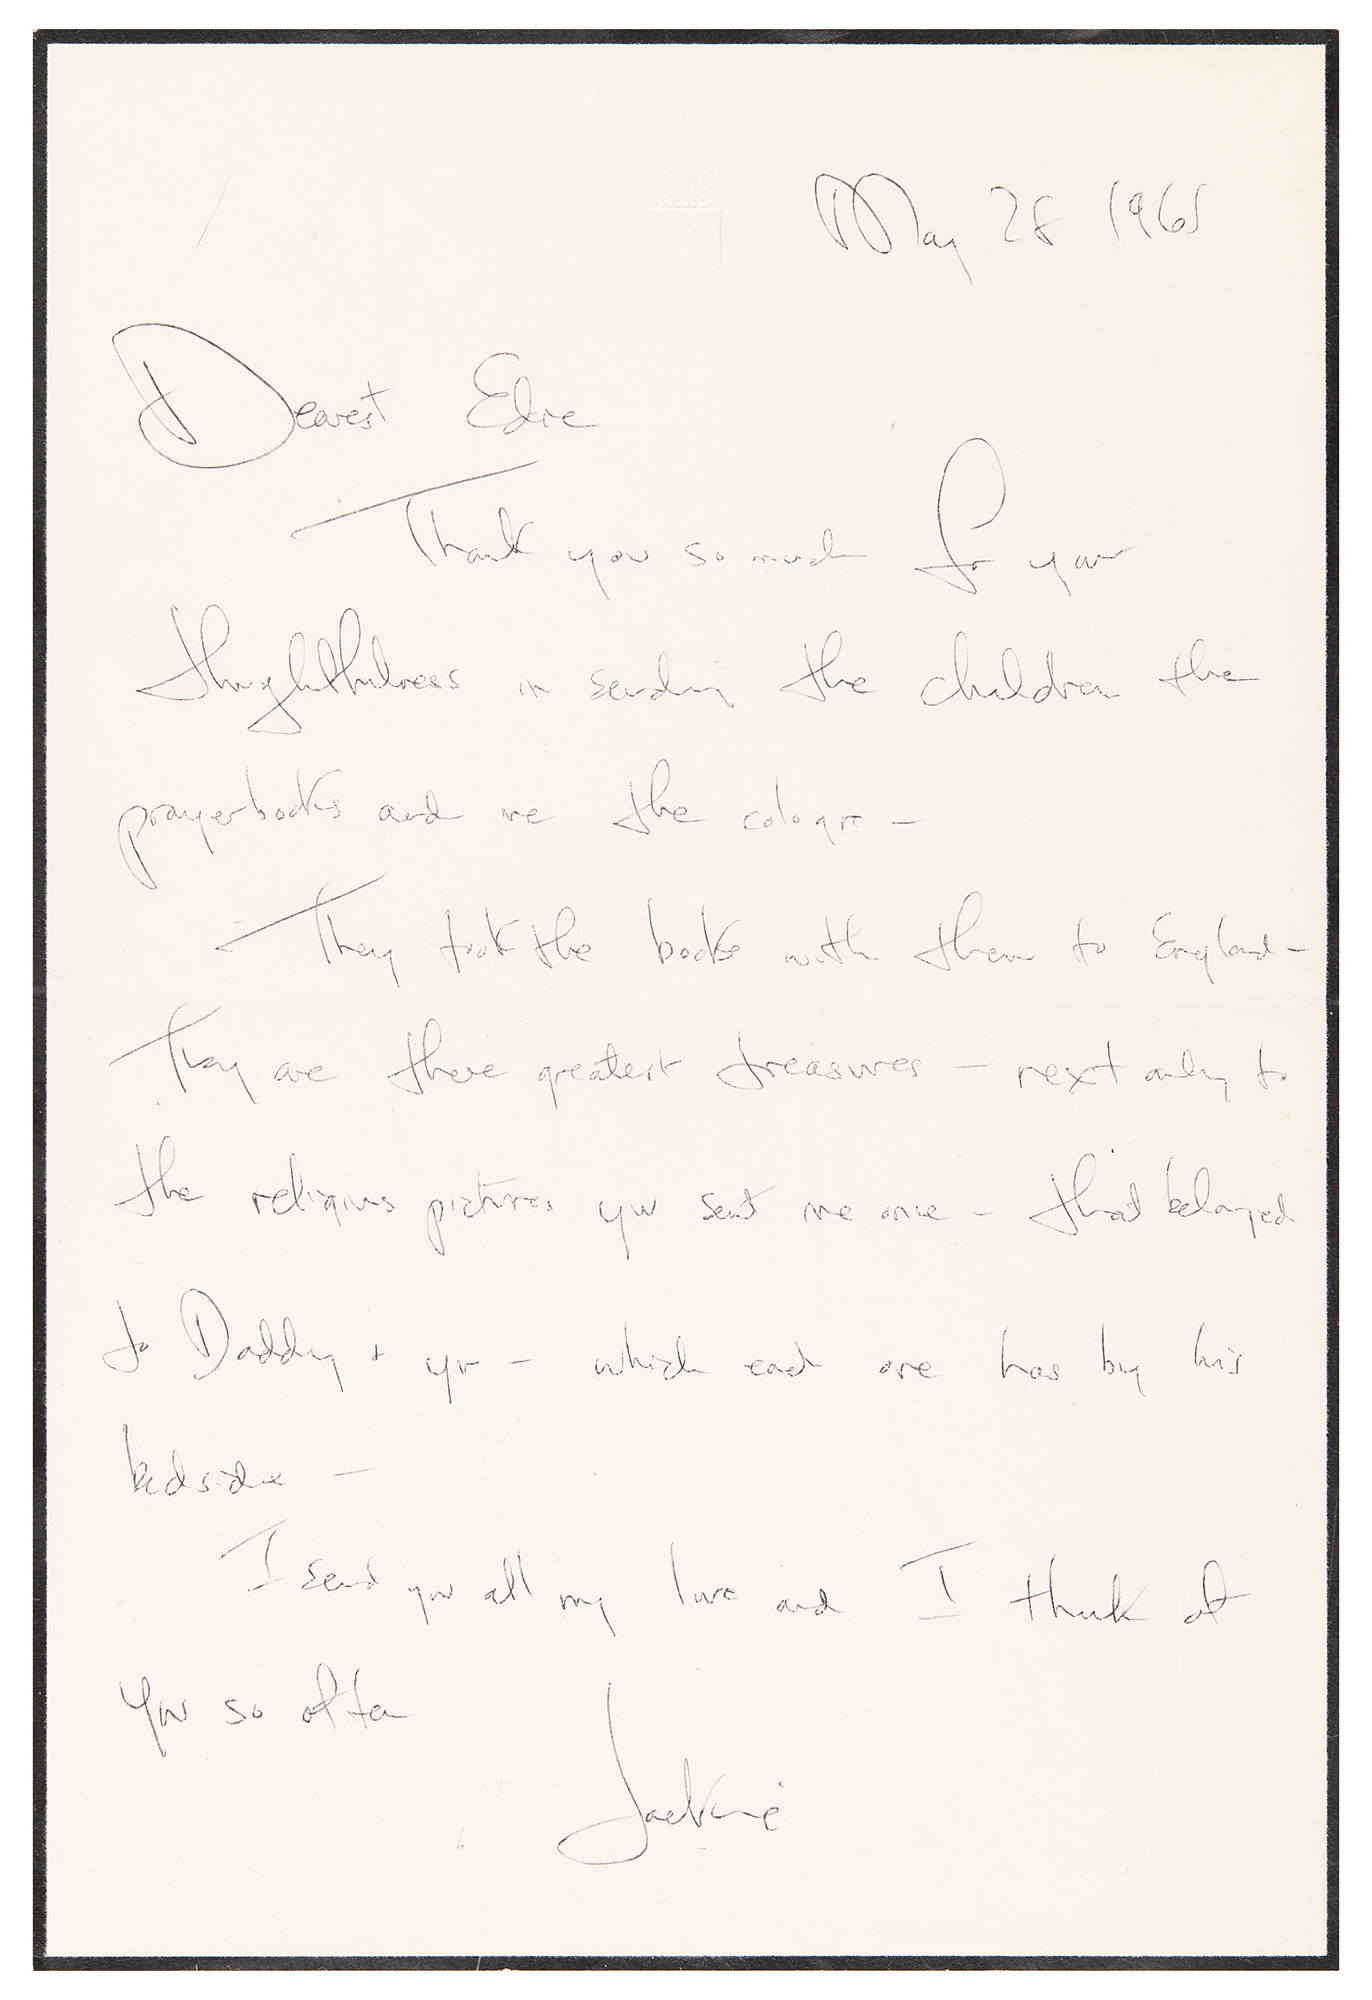 May 28 1965
Dearest Edie
Thank you so much for your
thoughtfulness in sending the children the
prayerbooks and me the cologne –
They took the books with them to England –
They are there greatest treasures – next only to
the religious pictures you sent me once – that belonged
to Daddy + you – which each one has by his
bedside –
I send you all my love and I think of
you so often
Jackie